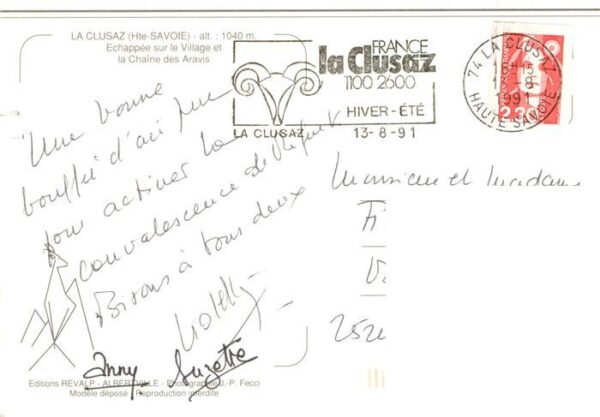 LA CLUSAZ (Hte-SAVOIE) - alt. : 1040 m.
Echappée sur le Village et
la Chaîne des Aravis
FRANCE
la Clusaz
1100 2600
HIVER - ÉTÉ
LA CLUSAZ
13-8-91
74 LA CLUSAZ
HAUTE SAVOIE
2.30
Une bonne
bouffée d'air pur
pour activer la
convalescence de
Bisous à tous deux
anny Suzette
Monsieur et Madame
Editions REVALP - ALBERTVILLE - Photographie J.-P. Fecci
Modèle déposé - Reproduction interdite